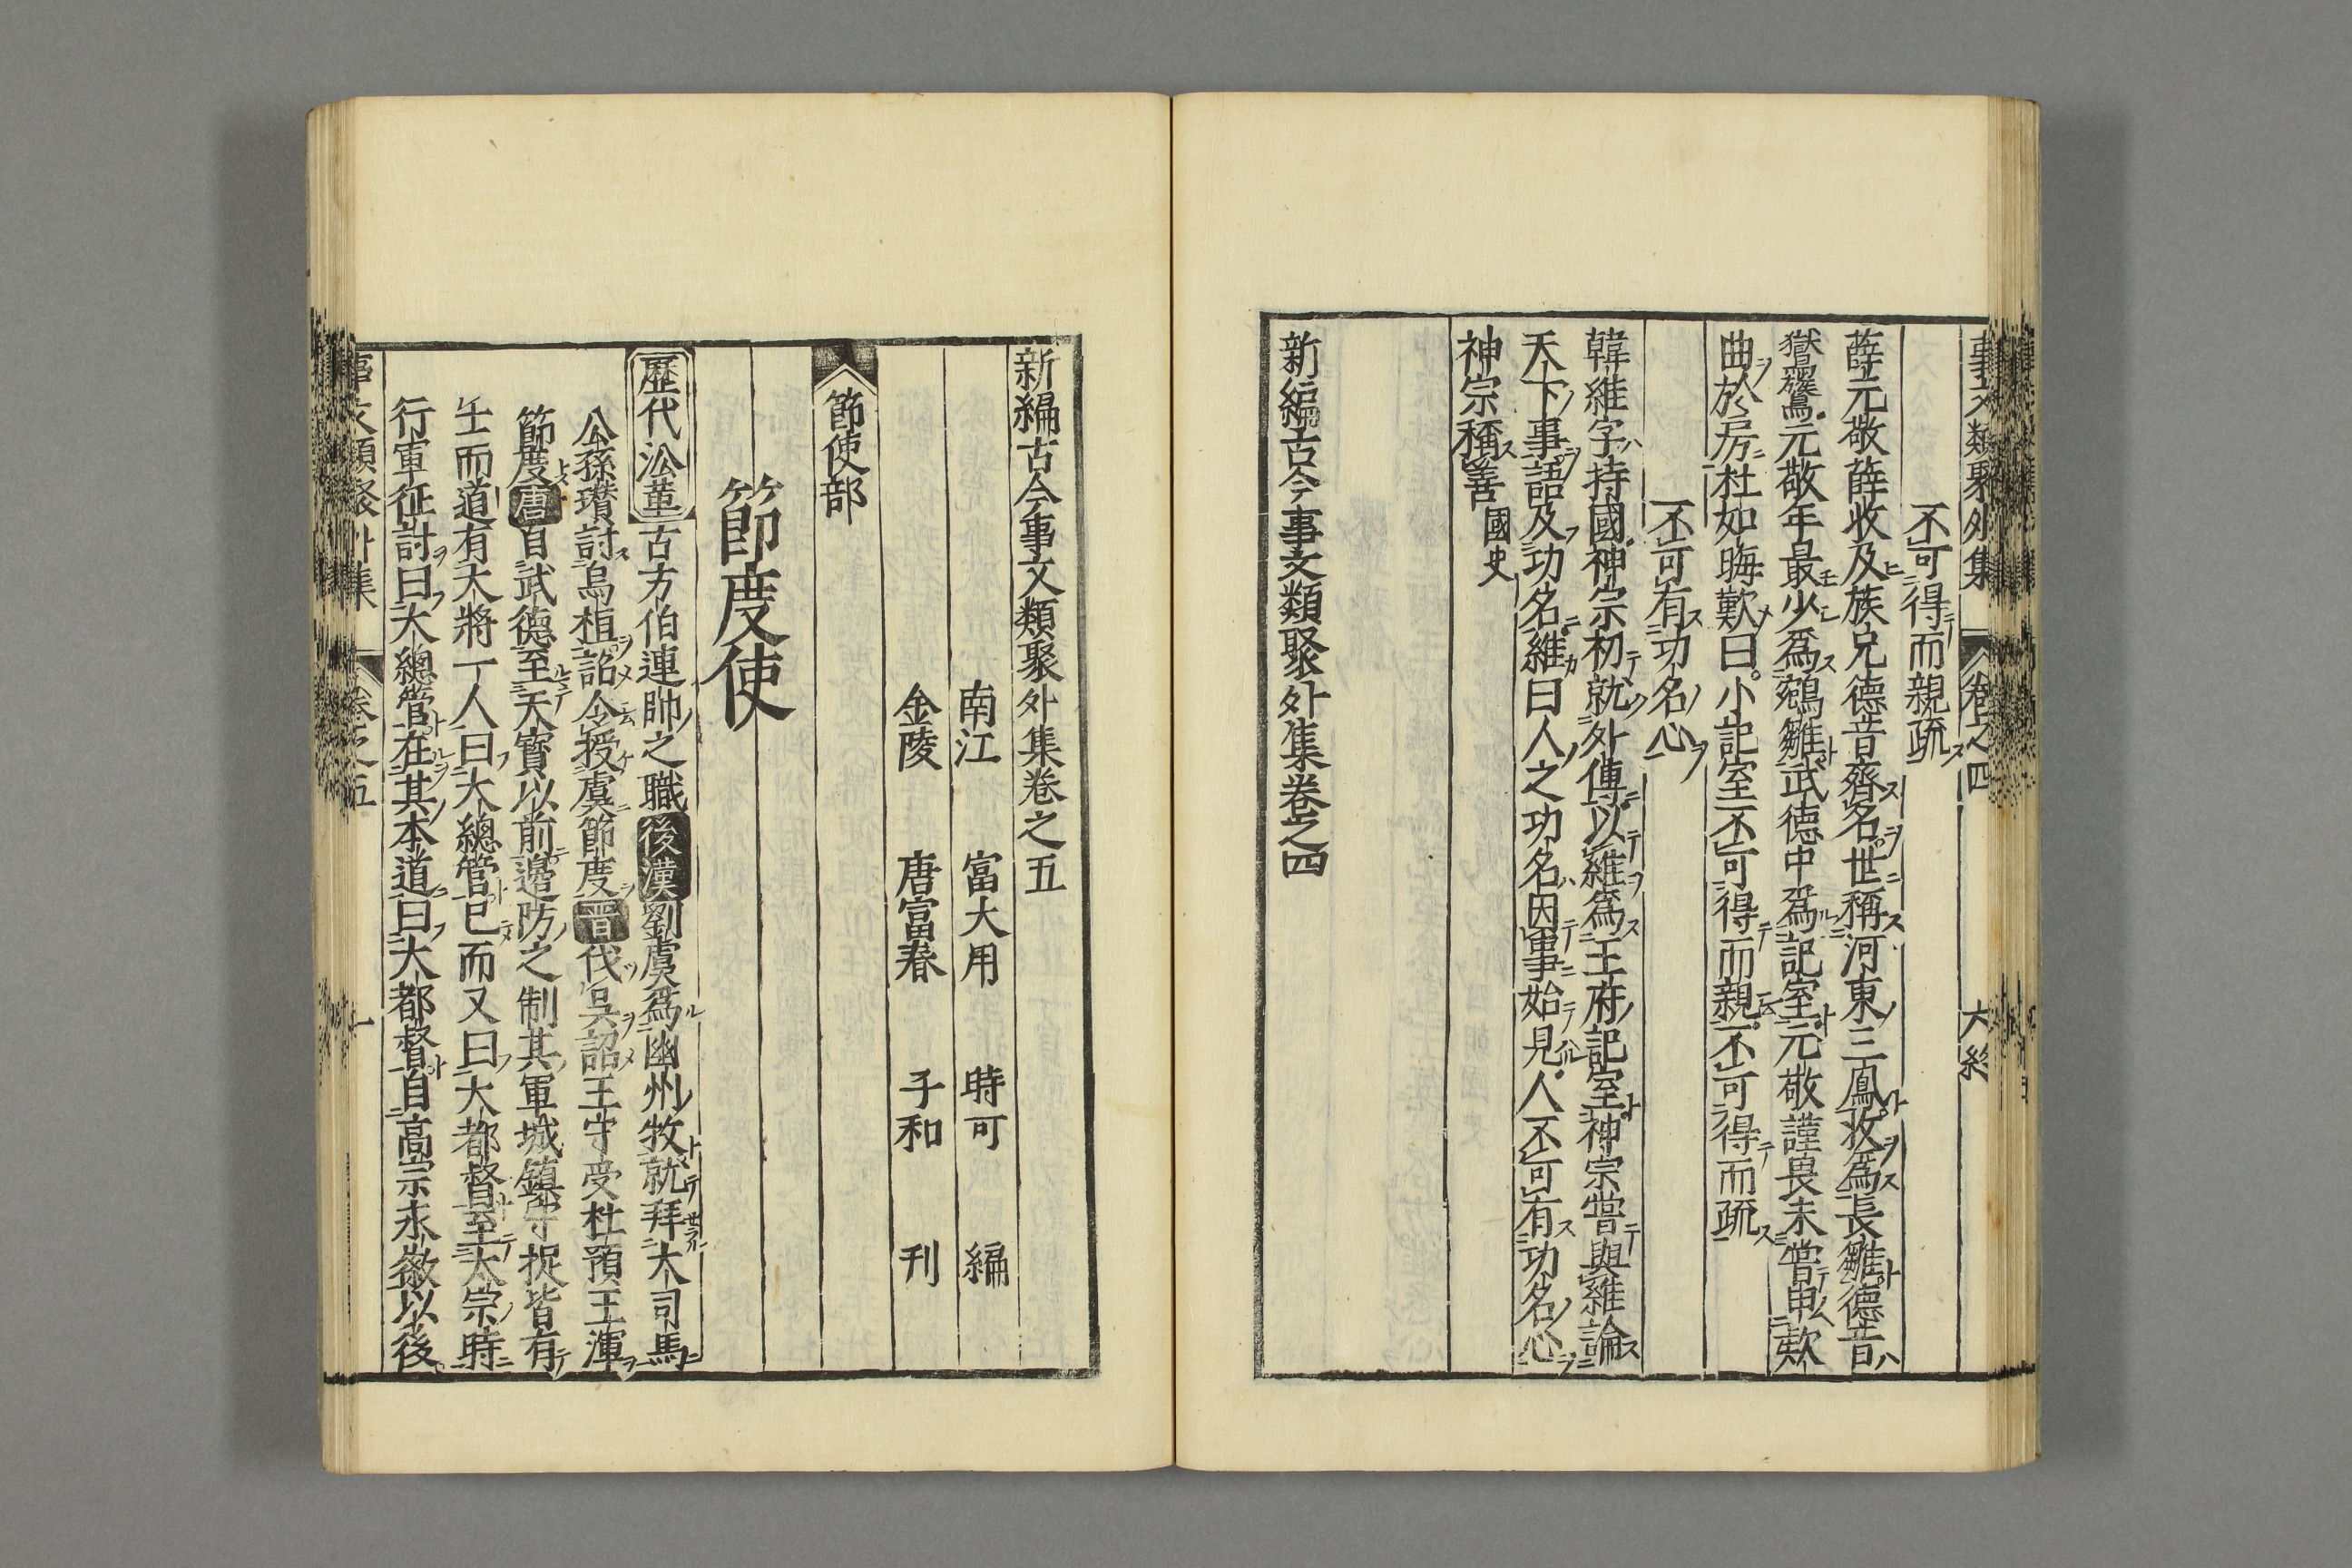 事文類聚外集 卷之四 六終
不可得而親疏
薛元敬薛收及族兄德音齊名世稱河東三鳳收爲長雛德音
鸑鷟元敬年最少爲鵷雛武德中爲記室元敬謹畏未嘗申款
曲於房杜如晦歎曰小記室不可得而親不可得而疏
不可有功名心
韓維字持國神宗初就外傅以維爲王府記室神宗嘗與維論
天下事語及功名維曰人之功名因事始見人不可有功名心
神宗稱善國史
新編古今事文類聚外集卷之四
新編古今事文類聚外集卷之五
南江 富大用 時可 編
金陵 唐富春 子和 刊
節使部
節度使
歷代沿革古方伯連帥之職後漢劉虞爲幽州牧就拜大司馬
公孫瓚討烏桓詔令授虞節度晉伐吳詔王守受杜預王渾
節度唐自武德至天寶以前邊防之制其軍城鎮守捉皆有
王而道有大將一人曰大總管已而又曰大都督至太宗時
行軍征討曰大總管在其本道曰大都督自高宗永徽以後
事文類聚外集 卷之五 一